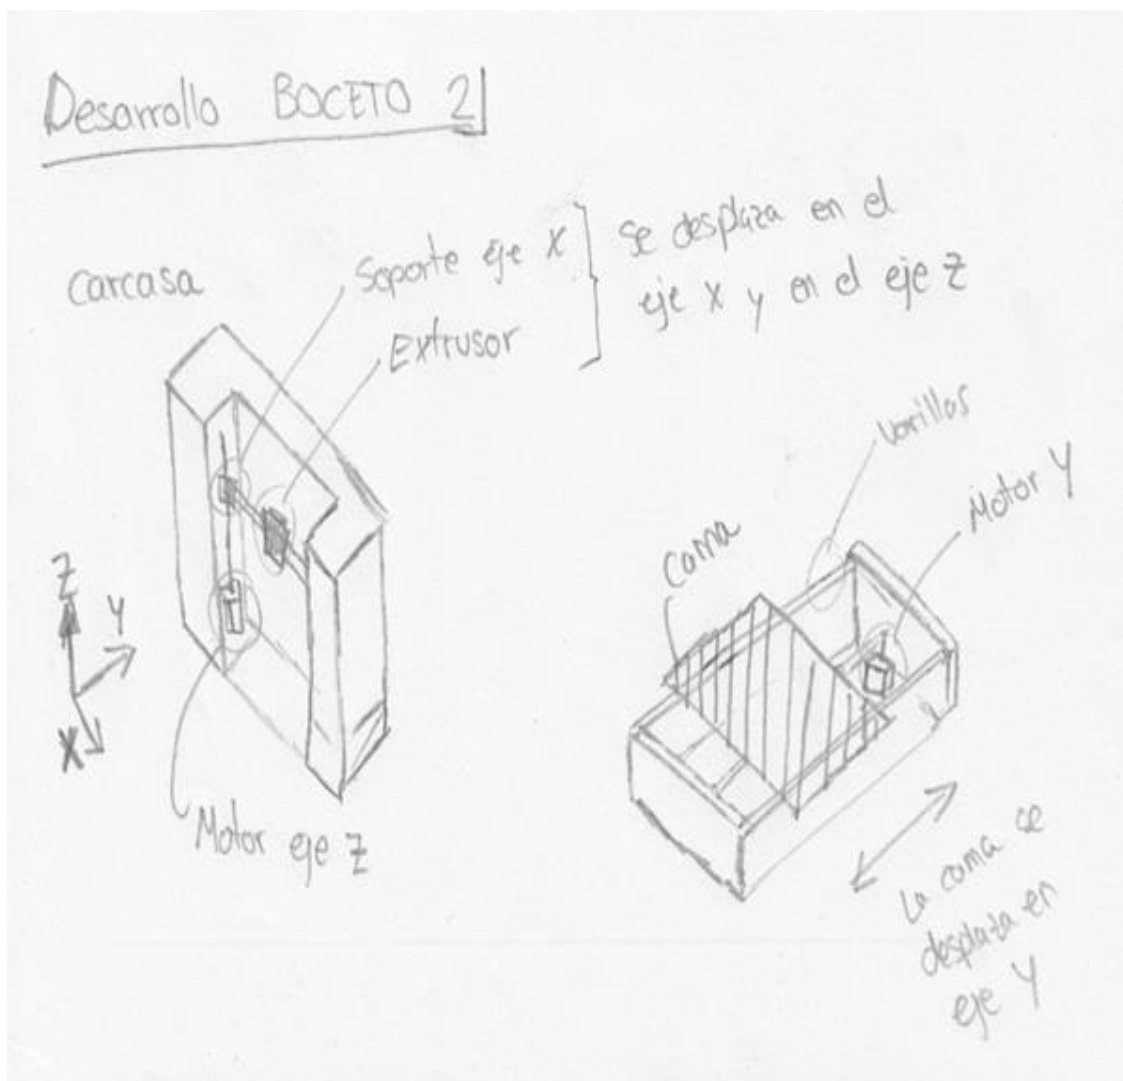 Desarrollo BOCETO 2
Carcasa
Soporte eje X
Extrusor
se desplaza en el
eje X y en el eje Z
Z
Y
X
Motor eje Z
Varillas
Motor Y
Cama
La cama se
desplaza en
eje Y